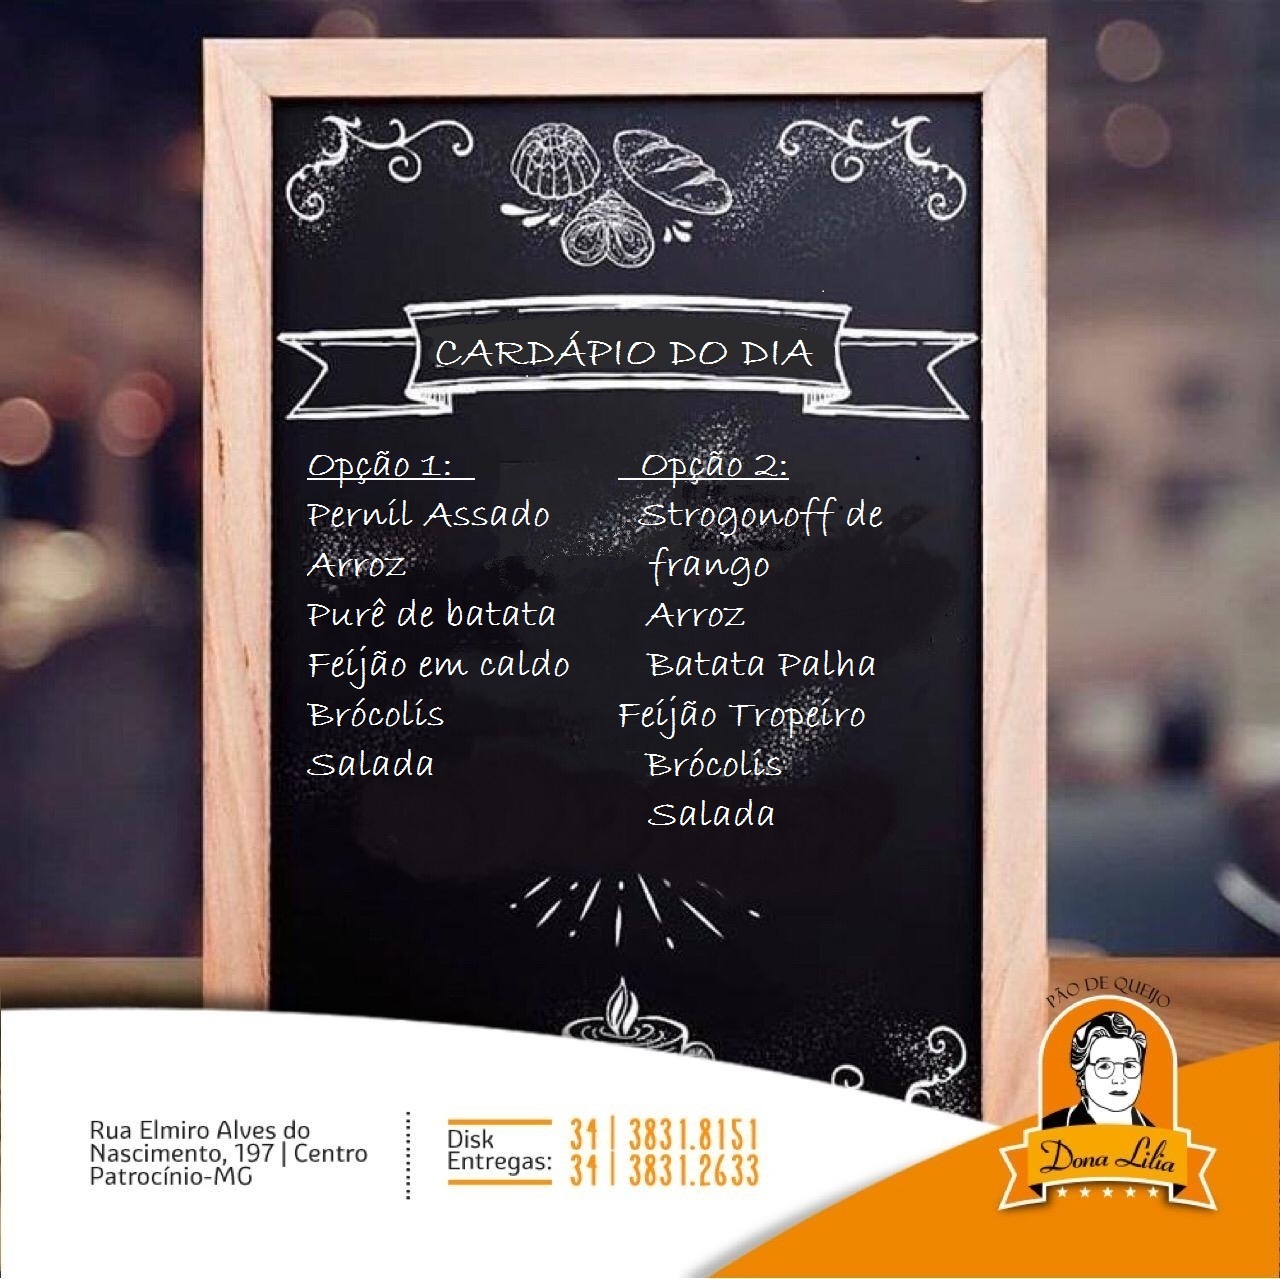 CARDÁPIO DO DIA
Opção 1:
Pernil Assado
Arroz
Purê de batata
Feijão em caldo
Brócolis
Salada
Opção 2:
Strogonoff de
frango
Arroz
Batata Palha
Feijão Tropeiro
Brócolis
Salada
Rua Elmiro Alves do
Nascimento, 197 | Centro
Patrocínio-MG
Disk
Entregas:
34 | 3831.8151
34 | 3831.2633
PÃO DE QUEIJO
Dona Lilia